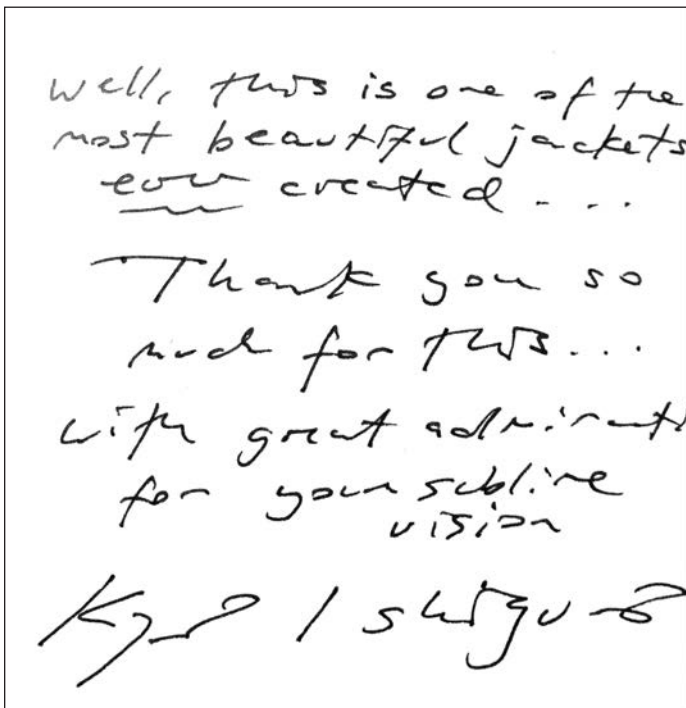 Well, this is one of the
most beautiful jackets
ever created ....
Thank you so
much for this...
with great admirati
for your sublime
vision
Kazuo Ishiguro